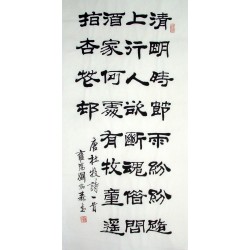 清朙時節雨紛紛路
上行人欲斷魂借問
酒家何處有牧童遙
指杏花邨
唐杜牧詩一首